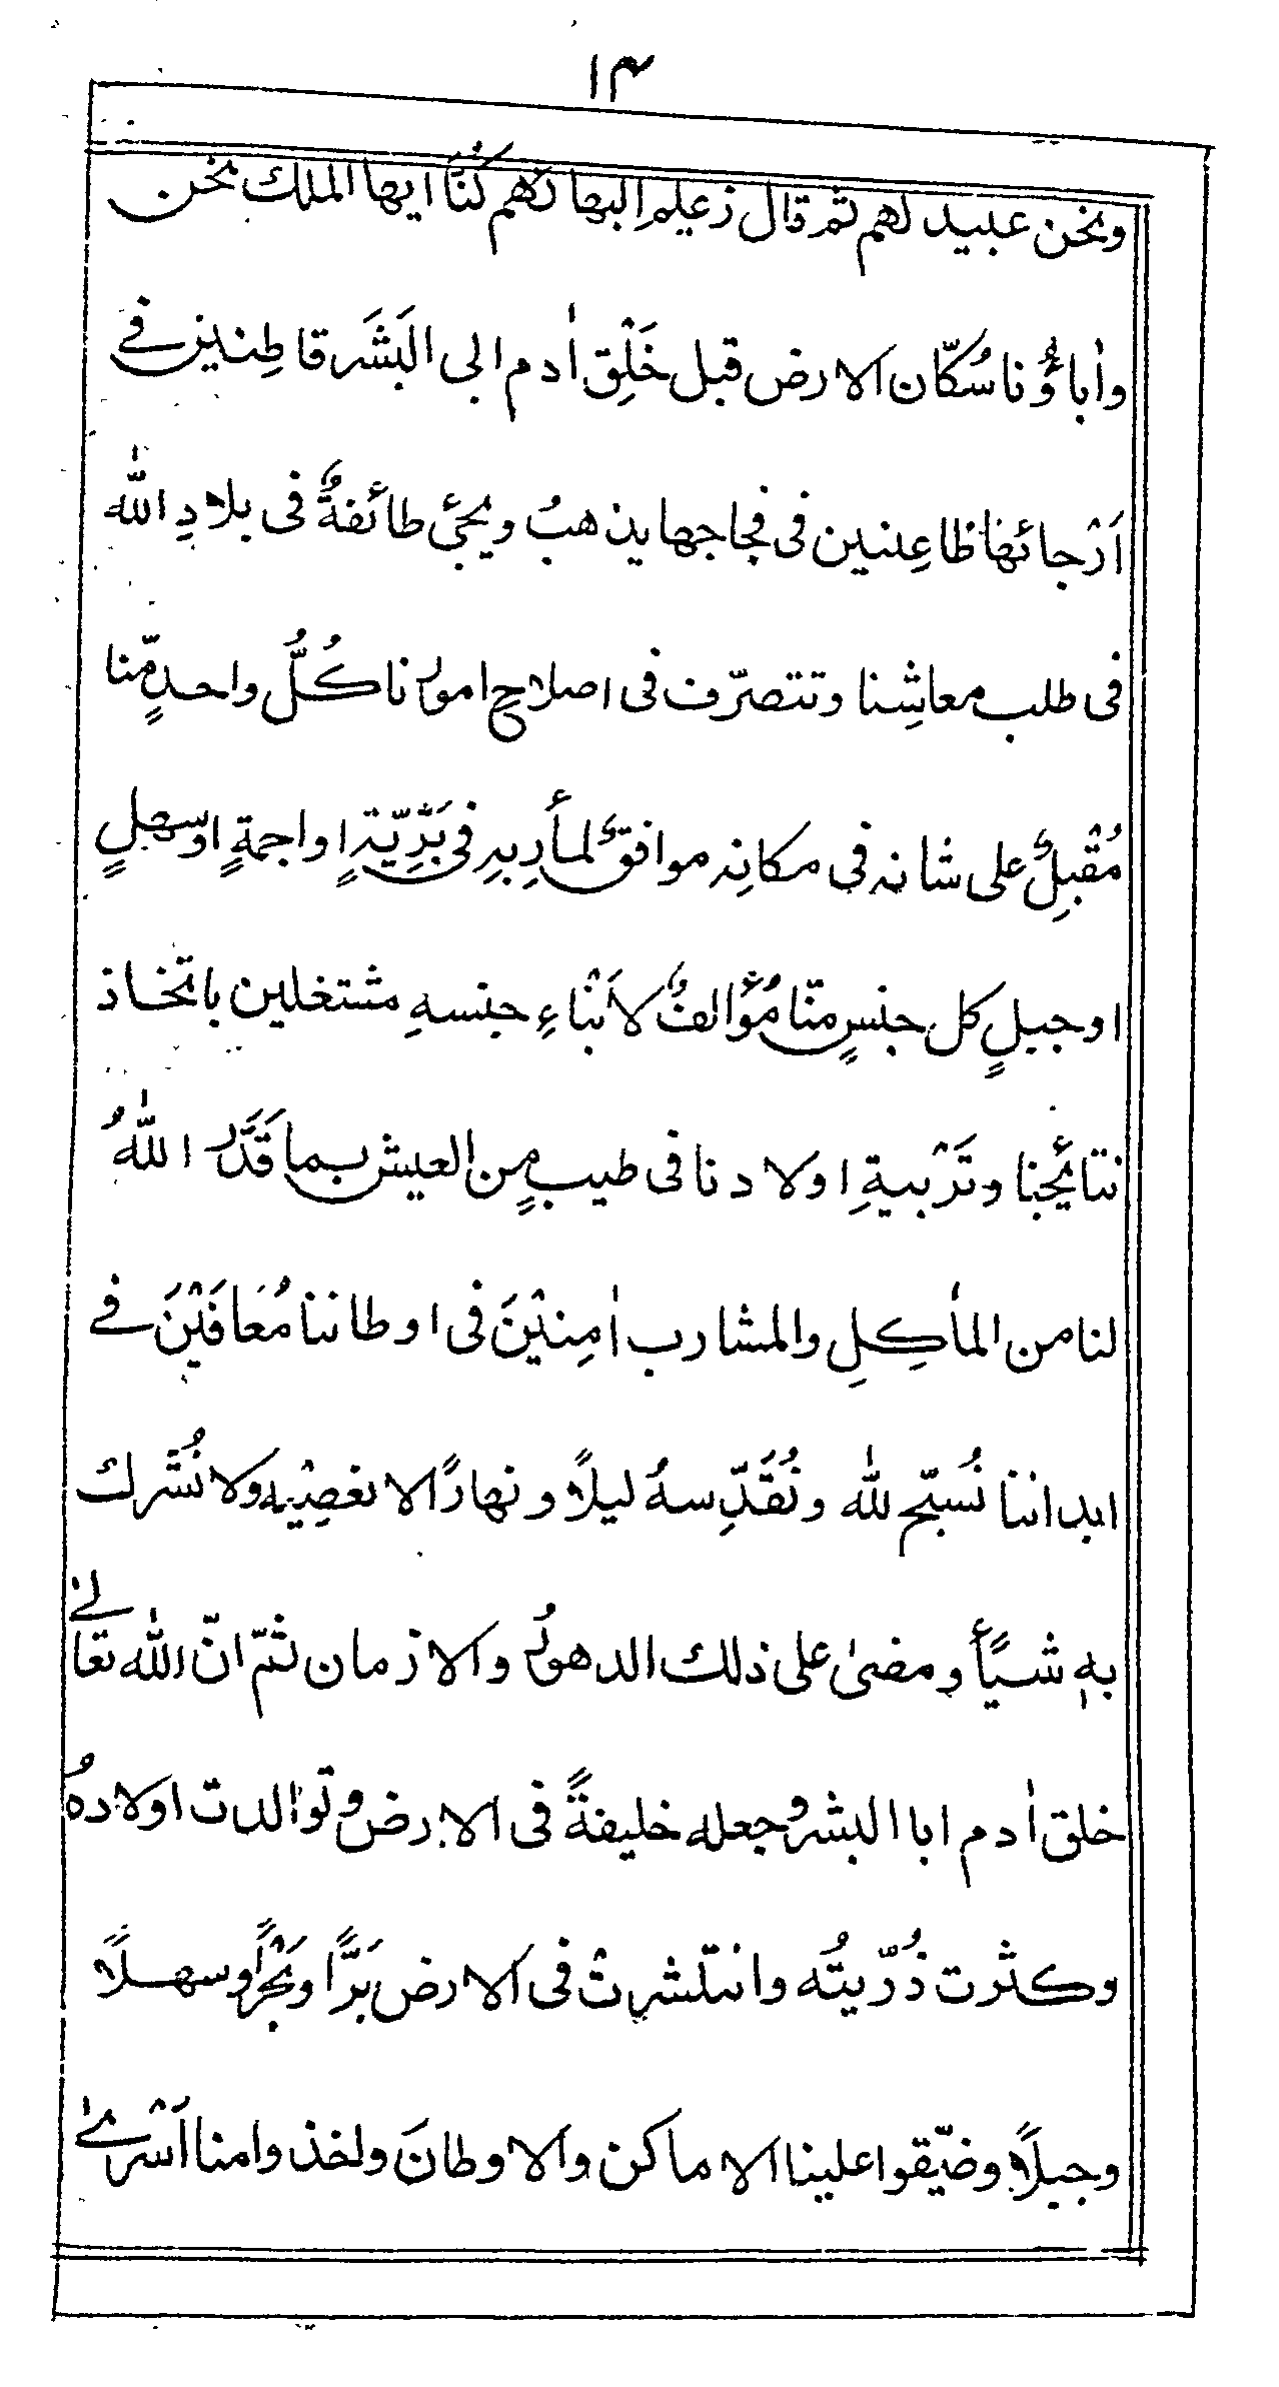 ۱۴
ونحن عبيد لهم ثم قال زعيم البهائم كُنَّا ايها الملك نحن
واٰباؤُنا سُكّان الارض قبل خَلْقِ اٰدم ابى البَشَر قاطِنين فے
اَرْجائها ظاعِنين فى فجاجها يذهبُ ويجئ طائفةٌ فى بلادِ الله
فى طلب معاشِنا وتتصرّف فى اصلاحِ امورنا كُلُّ واحدٍ مّنا
مُقْبِلٌ على شانه فى مكانِه موافقٌ لمأرِبِهِ فى بَرِّيّةٍ او اجمةٍ او سهلٍ
او جبلٍ كل جنسٍ منّا مُؤَالفٌ لاَبْناءِ جنسهِ مشتغلين باتخاذ
نتائجنا وتَرْبيةِ اولادنا فى طيبٍ من العيش بما قَدَّر اللّٰهُ
لنا من المأكِلِ والمشارب اٰمِنيْنَ فى اوطاننا مُعَافَيْنَ فے
ابداننا نُسبّح للّٰه ونُقَدِّسهُ ليلًا ونهارًا لا نعصِيْه ولا نُشْرك
بهٖ شيًأ ومضىٰ على ذلك الدهورُ والازمان ثمّ انّ اللّٰه تعالےٰ
خلق اٰدم ابا البشر وجعله خليفةً فى الارض وتوالدت اولادهُ
وكثرت ذُرّيتُه وانتشرتْ فى الارض بَرًّا وبَحْرًا وسهلًا
وجبلًا وضيّقوا علينا الاماكن والاوطانَ واخذوا منا اَسْرےٰ